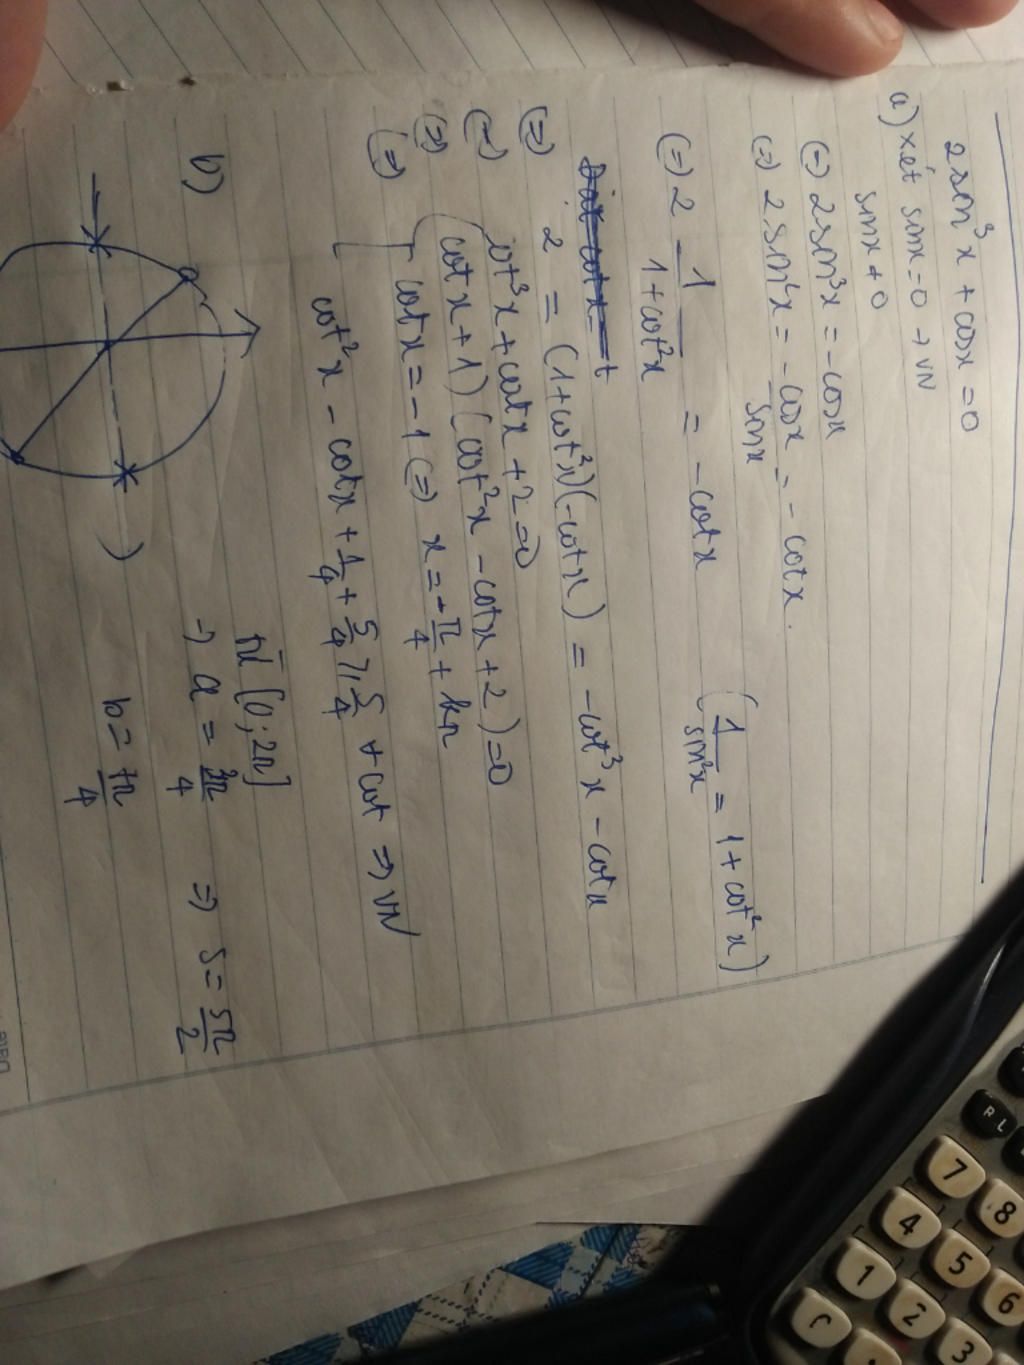 2sin³x + cosx = 0
a) xét sinx = 0 → VN
sinx ≠ 0
(=) 2sin³x = -cosx
(=) 2sin²x = -cosx/sinx = -cotx.
(=) 2 1/(1+cot²x) = -cotx (1/sin²x = 1 + cot²x)
(=) 2 = (1+cot²x)(-cotx) = -cot³x - cotx
(=) cot³x + cotx + 2 = 0
(=) (cotx + 1)(cot²x - cotx + 2) = 0
(=) cotx = -1 (=) x = -π/4 + kπ
cot²x - cotx + 1/4 + 5/4 ≥ 5/4 ∀ cot ⇒ VN
b)
a
[0; 2π]
→ a = 3π/4 ⇒ S = 5π/2
b = 7π/4
R L
7 8
4 5 6
1 2 3